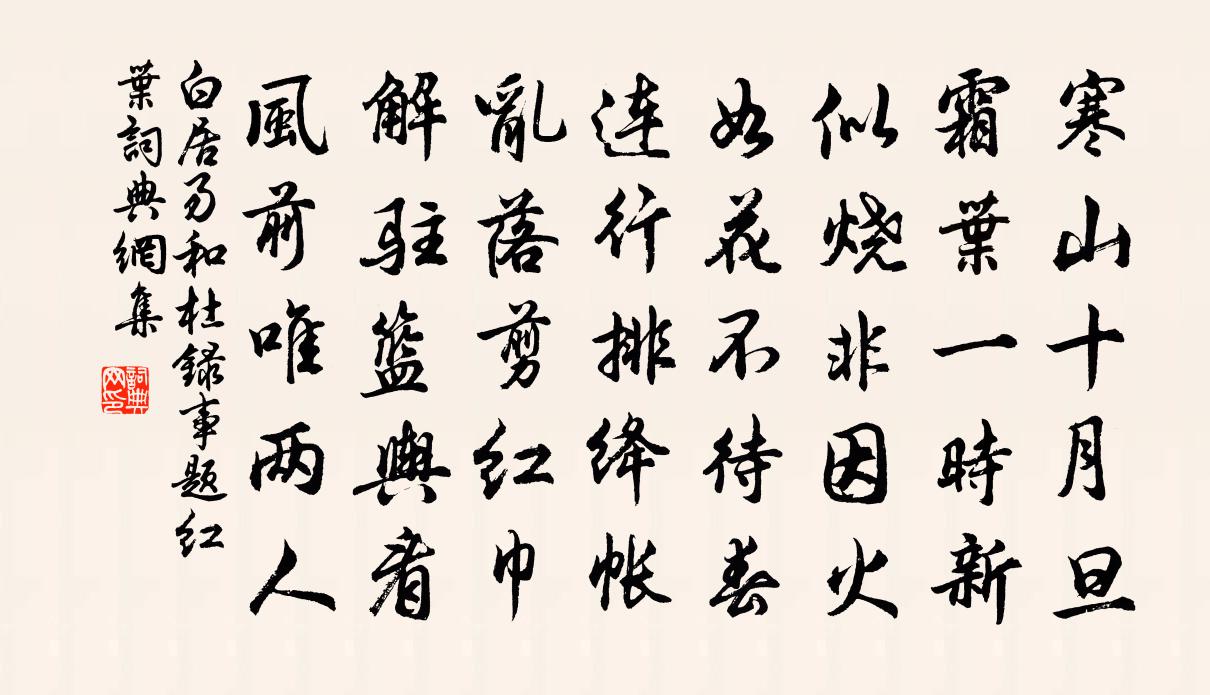 寒山十月旦
霜葉一時新
似烧非因火
如花不待春
連行排绛帐
亂落剪红巾
解駐籃輿看
風前唯两人
白居易和杜録事題红
葉詞典網集
詞典
网印